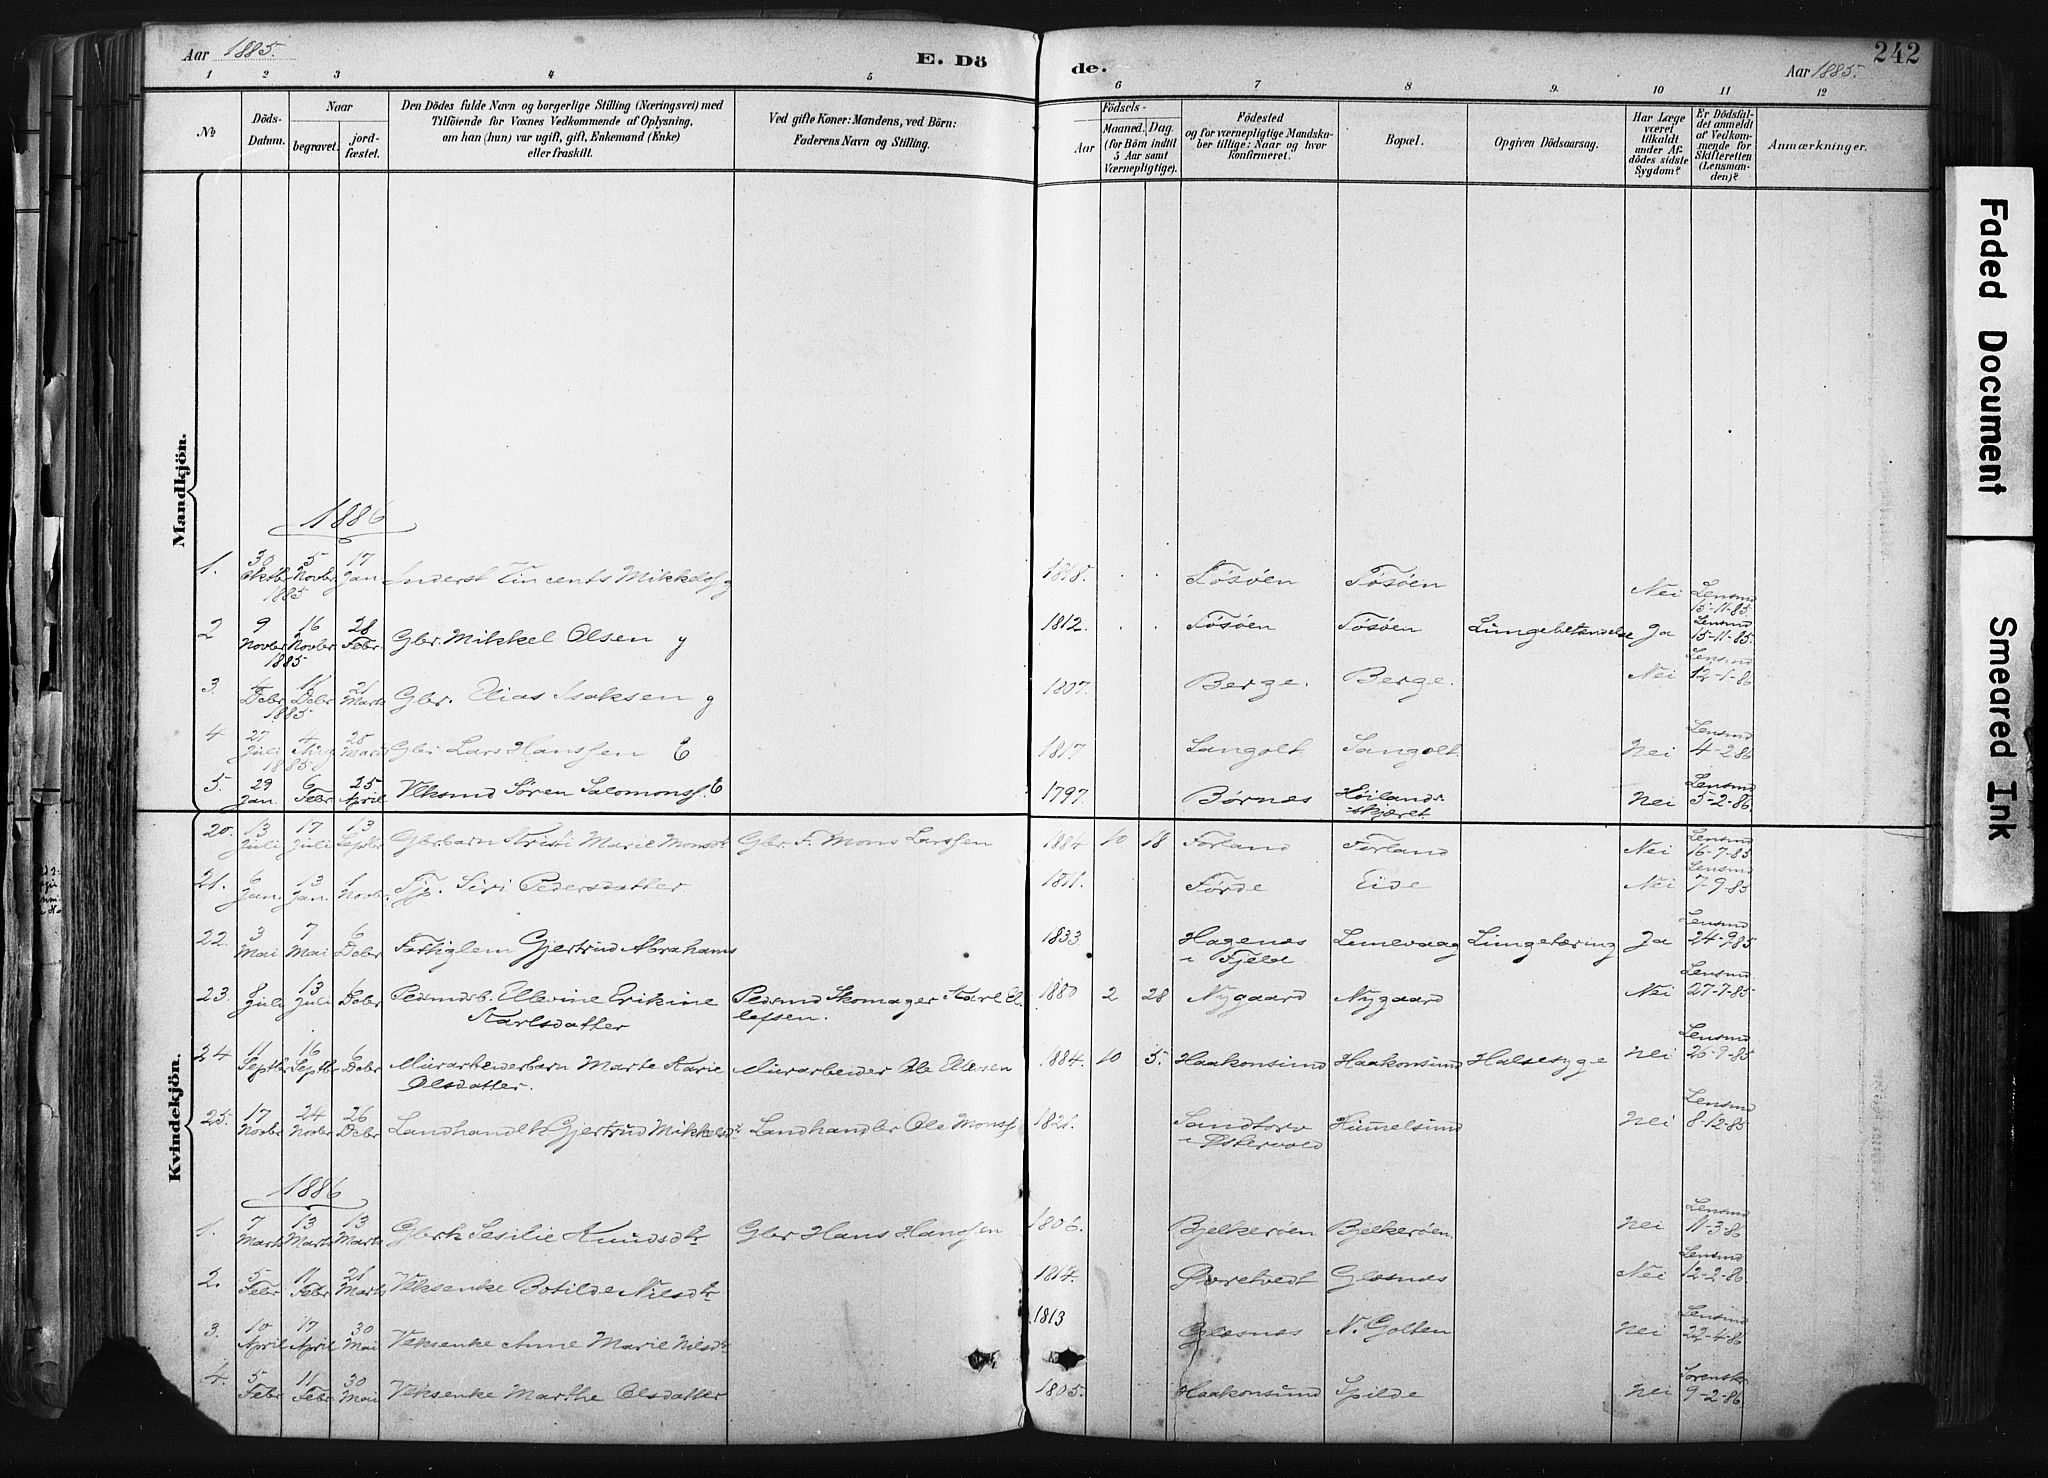 Aar 1885.
E. Dö
de.
Aar 1885.
242
1 2 3 4 5 6 7 8 9. 10 11 12
No
Döds-
Datum.
Naar
begravet.
jord-
fæstet.
Den Dödes fulde Navn og borgerlige Stilling (Næringsvei) med
Tilföiende for Voxnes Vedkommende af Oplysning,
om han (hun) var ugift, gift, Enkemand (Enke)
eller fraskilt.
Ved gifte Koner: Mandens, ved Börn:
Faderens Navn og Stilling.
Födsels-
Aar
Maaned. Dag.
(for Börn indtil
5 Aar samt
Værnepligtige).
Födested
og for værnepligtige Mandska-
ber tillige: Naar og hvor
konfirmeret.
Bopæl.
Opgiven Dödsaarsag.
Har Læge
været
tilkaldt
under Af-
dödes sidste
Sygdom?
Er Dödsfal-
det anmeldt
af Vedkom-
mende for
Skifteretten
(Lensman-
den)?
Anmærkninger.
Mandkjön.
1886
1. 30 Oktbr 5 Novbr 1885 17 Jan Inderst Vincents Mikkelss g 1818. Tøsøen Tøsøen Nei Lensmd 15-11-85
2 9 Novbr 16 Novbr 1885 28 Febr. Gbr. Mikkel Olsen g 1812. Tøsøen Tøsøen Lungebetændelse Ja Lensmd 15-11-85.
3. 4 Debr 11 Debr 1885 21 Marts Gbr. Elias Isaksen g 1807. Berge. Berge. Nei Lensmd 12-1-86
4 27 Juli 4 Aug 1885 28 Marts Gbr Lars Hanssen E 1817 Sangolt Sangolt. Nei Lensmd 4-2-86
5. 29 Jan. 6 Febr 25 April Veksmd Søren Salomonss. E 1797. Børnes Høilands- skjæret Nei Lensmd 5-2-86
Kvindekjön.
20. 13 Juli 17 Juli 13 Septbr Gbrbarn Kristi Marie Monsdt Gbr. F. Mons Larssen 1884 10 18 Førland Førland Nei Lensmd 16-7-85
21. 6 Jan. 13 Jan. 1 Novbr. Tjp. Siri Pedersdatter 1811. Førde Eide Nei Lensmd 7-9-85
22. 3 Mai 7 Mai 6 Debr Fattiglem Gjertrud Abrahams 1833. Hagenæs i Fjeld Lunevaag Lungetæring Ja Lensmd 24-9-85
23. 8 Juli 13 Juli 6 Debr Pedsmdsb. Ellevine Erikine Pedsmd Skomager Karl El- 1880 2 28 Nygaard Nygaard Nei Lensmd 27-7-85
Karlsdatter lefsen.
24 11 Septbr 16 Septbr 6 Debr Murarbeiderbarn Marte Karie Murarbeider Ole Ellefsen 1884. 10 5. Haakonsund Haakonsund Halsesyge Nei Lensmd 26-9-85
Olsdatter.
25. 17 Novbr 24 Novbr 26 Debr Landhandlk Gjertrud Mikkelsdt Landhandler Ole Monss 1821. Sandtorv i Østervold Himmelsund Nei Lensmd 8-12-85
1886
1. 7 Marts 13 Marts 13 Marts Gbrk Sesilie Knudsdtr Gbr Hans Hanssen 1806. Bjelkerøen Bjelkerøen. Nei Lensmd 11-3-86
2. 5 Febr 11 Febr 21 Marts Veksenke Botilde Nilsdtr 1817. Øvretvedt Glesnæs Nei Lensmd 12-2-86
3. 10 April 17 April 30 Mai Veksenke Anne Marie Nilsdtr 1813 Glesnæs N. Golten Nei Lensmd 22-4-86
4. 5 Febr 11 Febr 30 Mai Veksenke Marthe Olsdatter 1805. Haakonsund Spilde Nei 9-2-86.
Faded Document
Smeared Ink